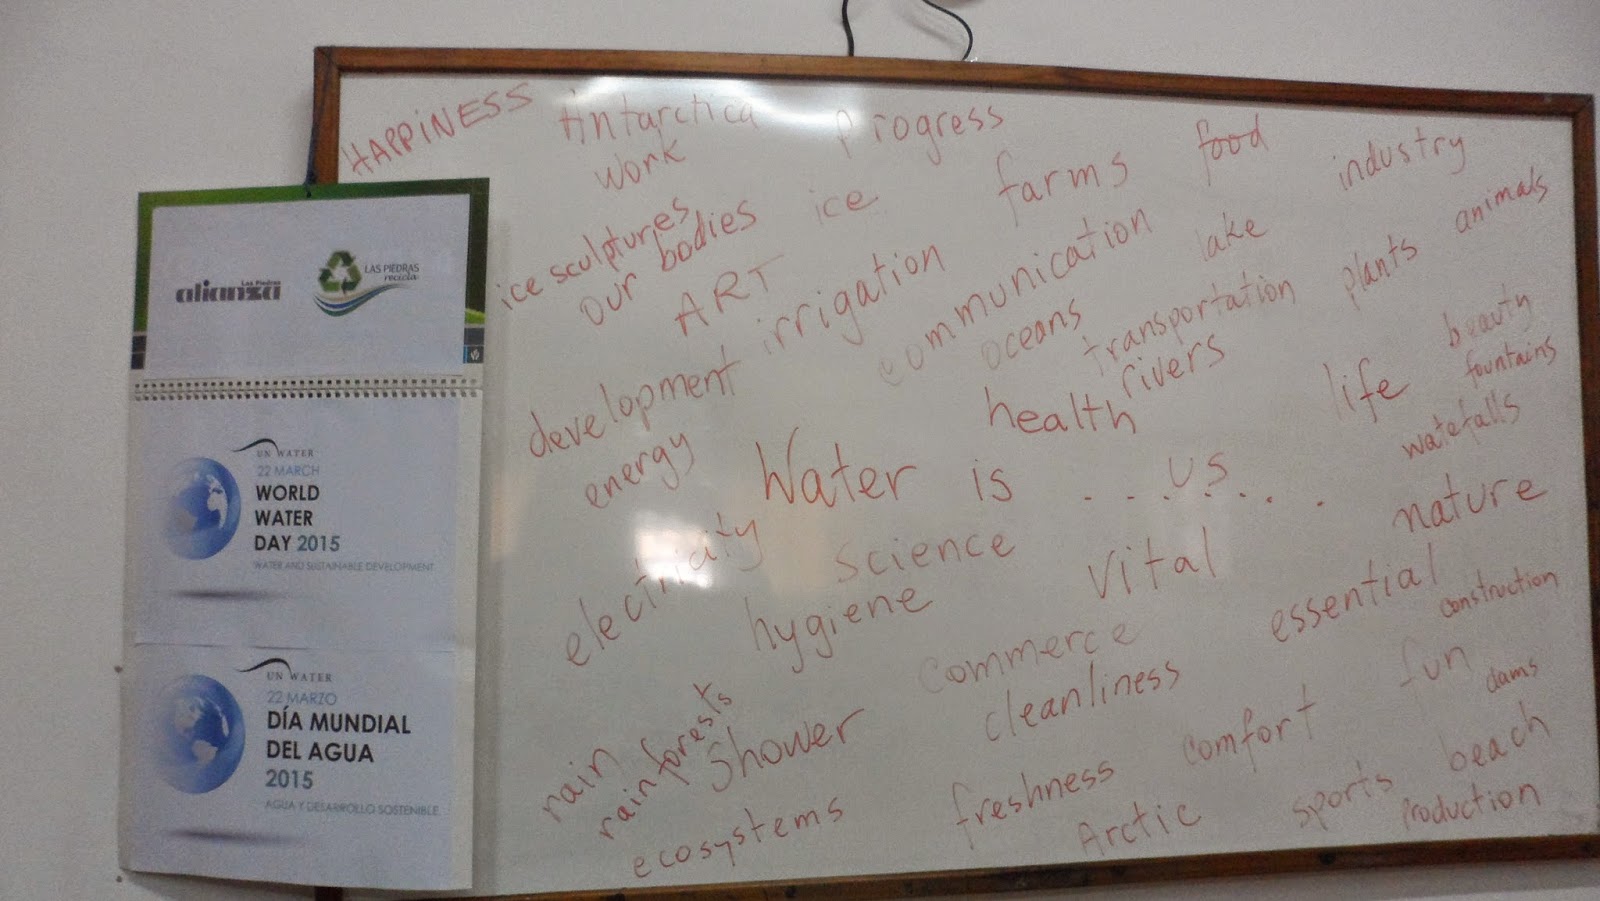 Las Piedras
alianza
LAS PIEDRAS
recicla
UN WATER
22 MARCH
WORLD
WATER
DAY 2015
WATER AND SUSTAINABLE DEVELOPMENT
UN WATER
22 MARZO
DÍA MUNDIAL
DEL AGUA
2015
AGUA Y DESARROLLO SOSTENIBLE
HAPPINESS
Antarctica
progress
work
food
industry
ice sculptures
our bodies
ice
farms
animals
ART
irrigation
communication
lake
plants
development
oceans
transportation
beauty
energy
health
rivers
life
fountains
Water is ........
us
watefalls
electricity
science
vital
nature
hygiene
commerce
essential
construction
rain
rainforests
shower
cleanliness
fun
dams
ecosystems
freshness
comfort
beach
Arctic
sports
production